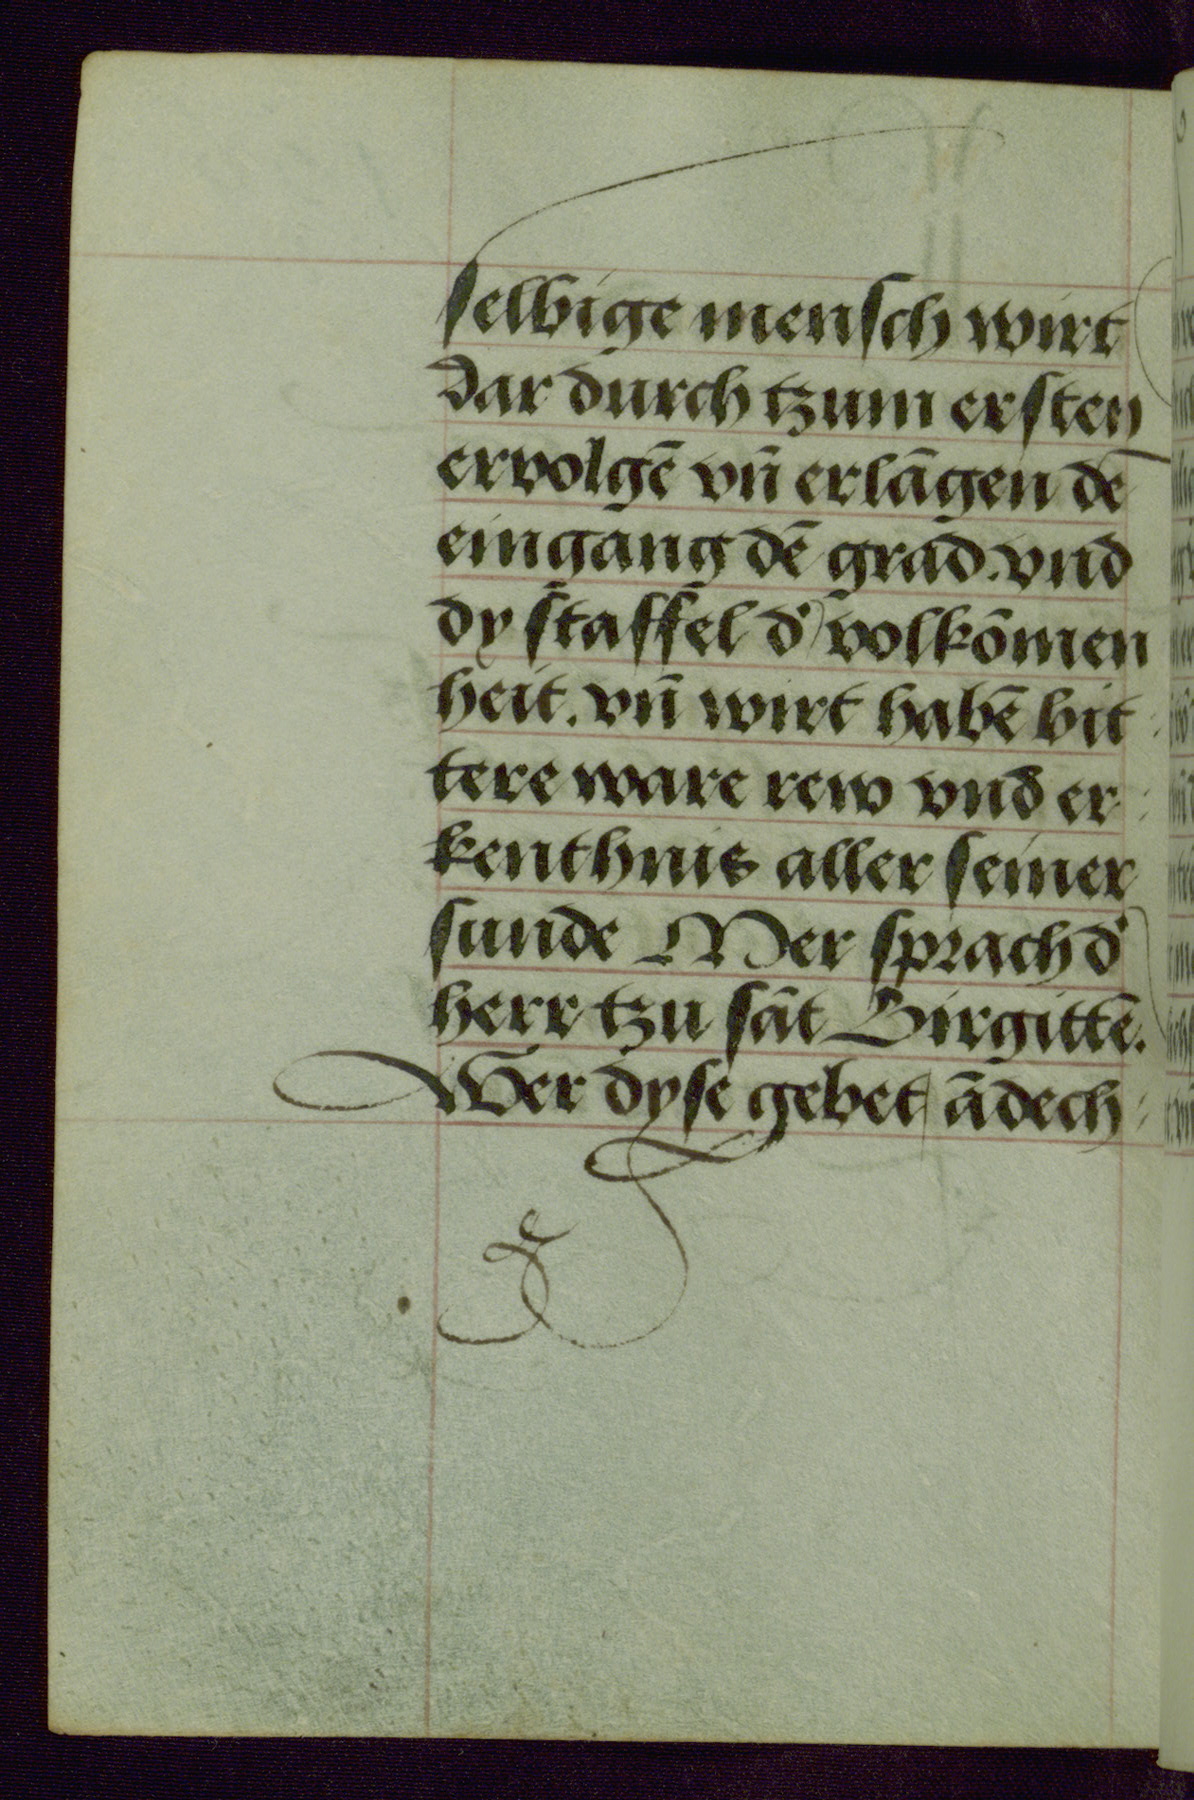 selbige mensch wirt
dar durch tzum ersten
ervolgē vn̄ erlāgen dē
eingang dē grad. vnd
dy staffel d' volkōmen
heit. vn̄ wirt habē bit
tere ware rew vnd er
kenthnis aller seiner
sunde Mer sprach d'
herr tzu sāt Birgittē.
Wer dyse gebet ādech